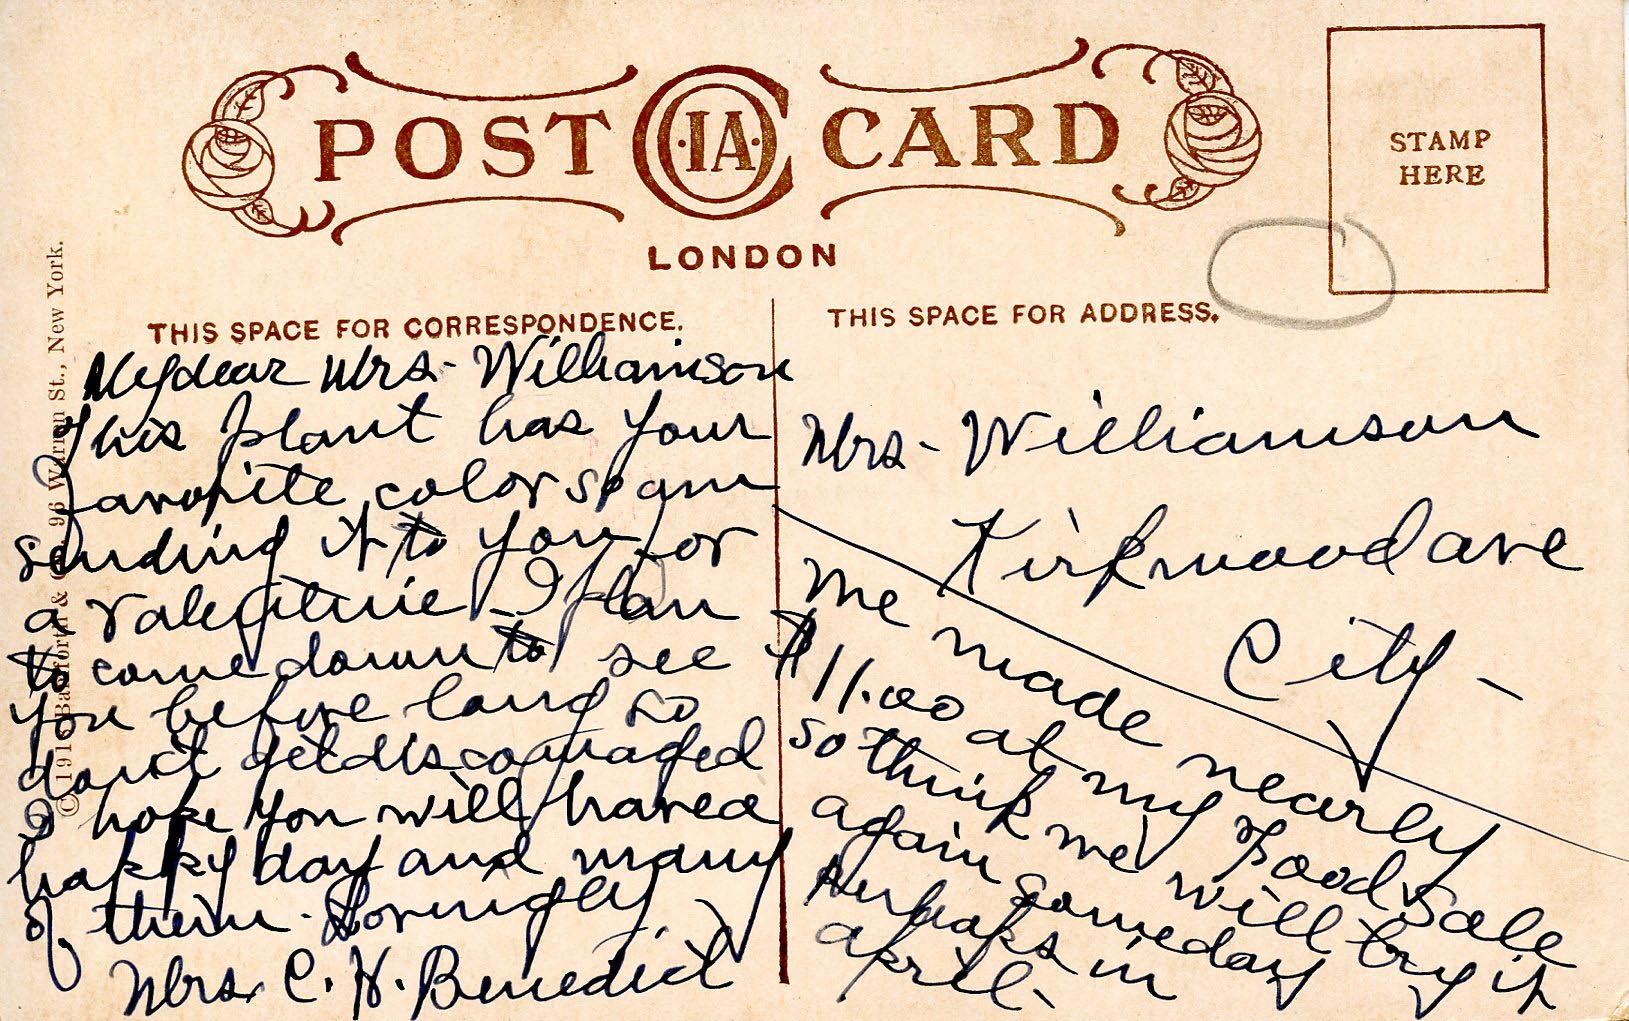 POST CARD
·IA·
LONDON
STAMP
HERE
THIS SPACE FOR CORRESPONDENCE.
THIS SPACE FOR ADDRESS.
My dear Mrs- Williamson
This plant has your
favorite color so am
sending it to you for
a valentine - I plan
to come down to see
you before long so
don't get discouraged
I hope you will have a
happy day and many
of them. Lovingly
Mrs. C. H. Benedict
Mrs- Williamson
Kirkwood ave
City -
We made nearly
$11.00 at my Food Sale
so think we will try it
again someday
perhaps in
april-
© 1915 Bamforth & Co. 96 Warren St., New York.